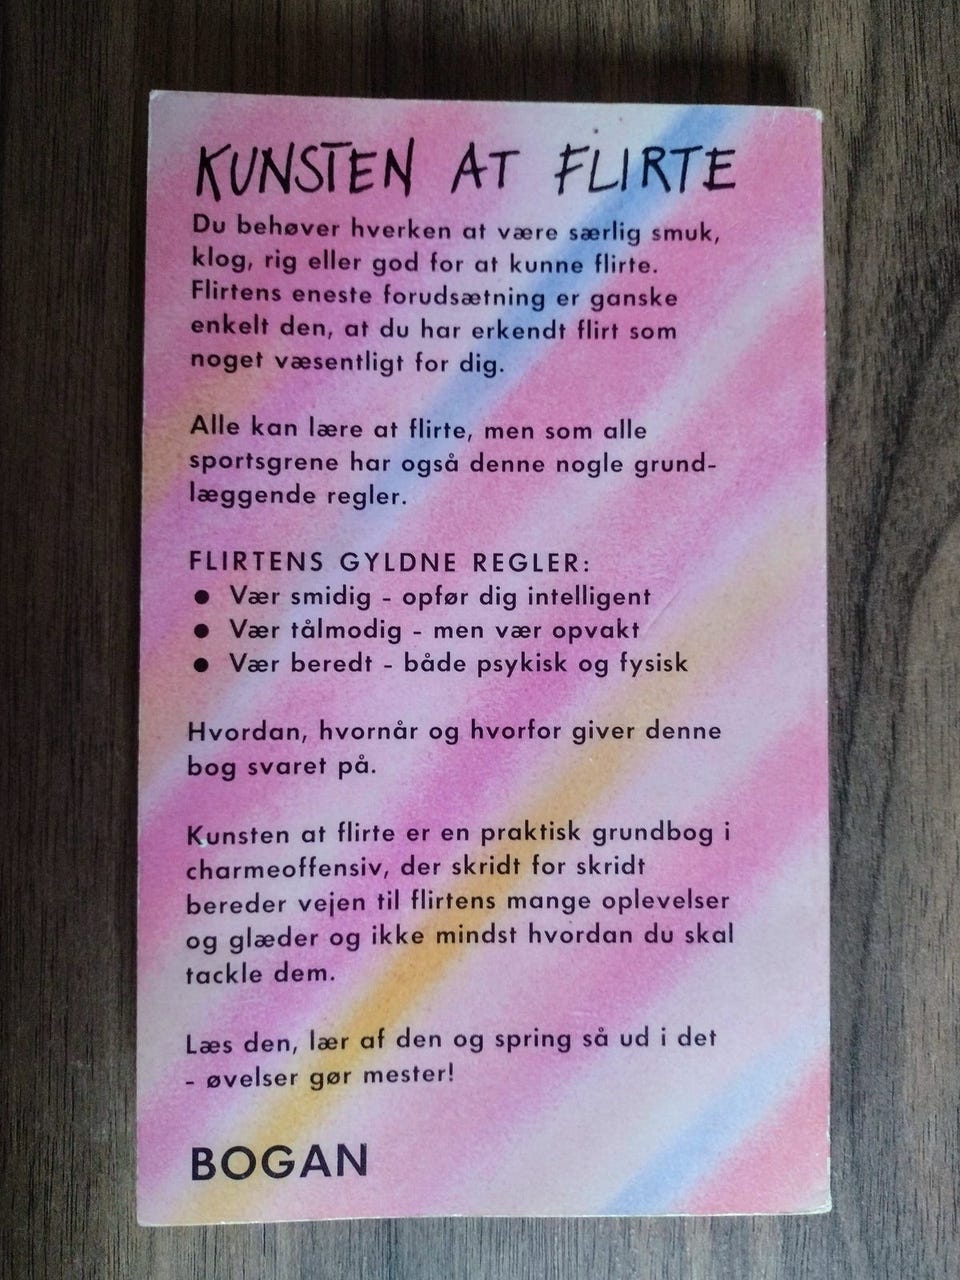 KUNSTEN AT FLIRTE
Du behøver hverken at være særlig smuk,
klog, rig eller god for at kunne flirte.
Flirtens eneste forudsætning er ganske
enkelt den, at du har erkendt flirt som
noget væsentligt for dig.
Alle kan lære at flirte, men som alle
sportsgrene har også denne nogle grund-
læggende regler.
FLIRTENS GYLDNE REGLER:
● Vær smidig - opfør dig intelligent
● Vær tålmodig - men vær opvakt
● Vær beredt - både psykisk og fysisk
Hvordan, hvornår og hvorfor giver denne
bog svaret på.
Kunsten at flirte er en praktisk grundbog i
charmeoffensiv, der skridt for skridt
bereder vejen til flirtens mange oplevelser
og glæder og ikke mindst hvordan du skal
tackle dem.
Læs den, lær af den og spring så ud i det
- øvelser gør mester!
BOGAN